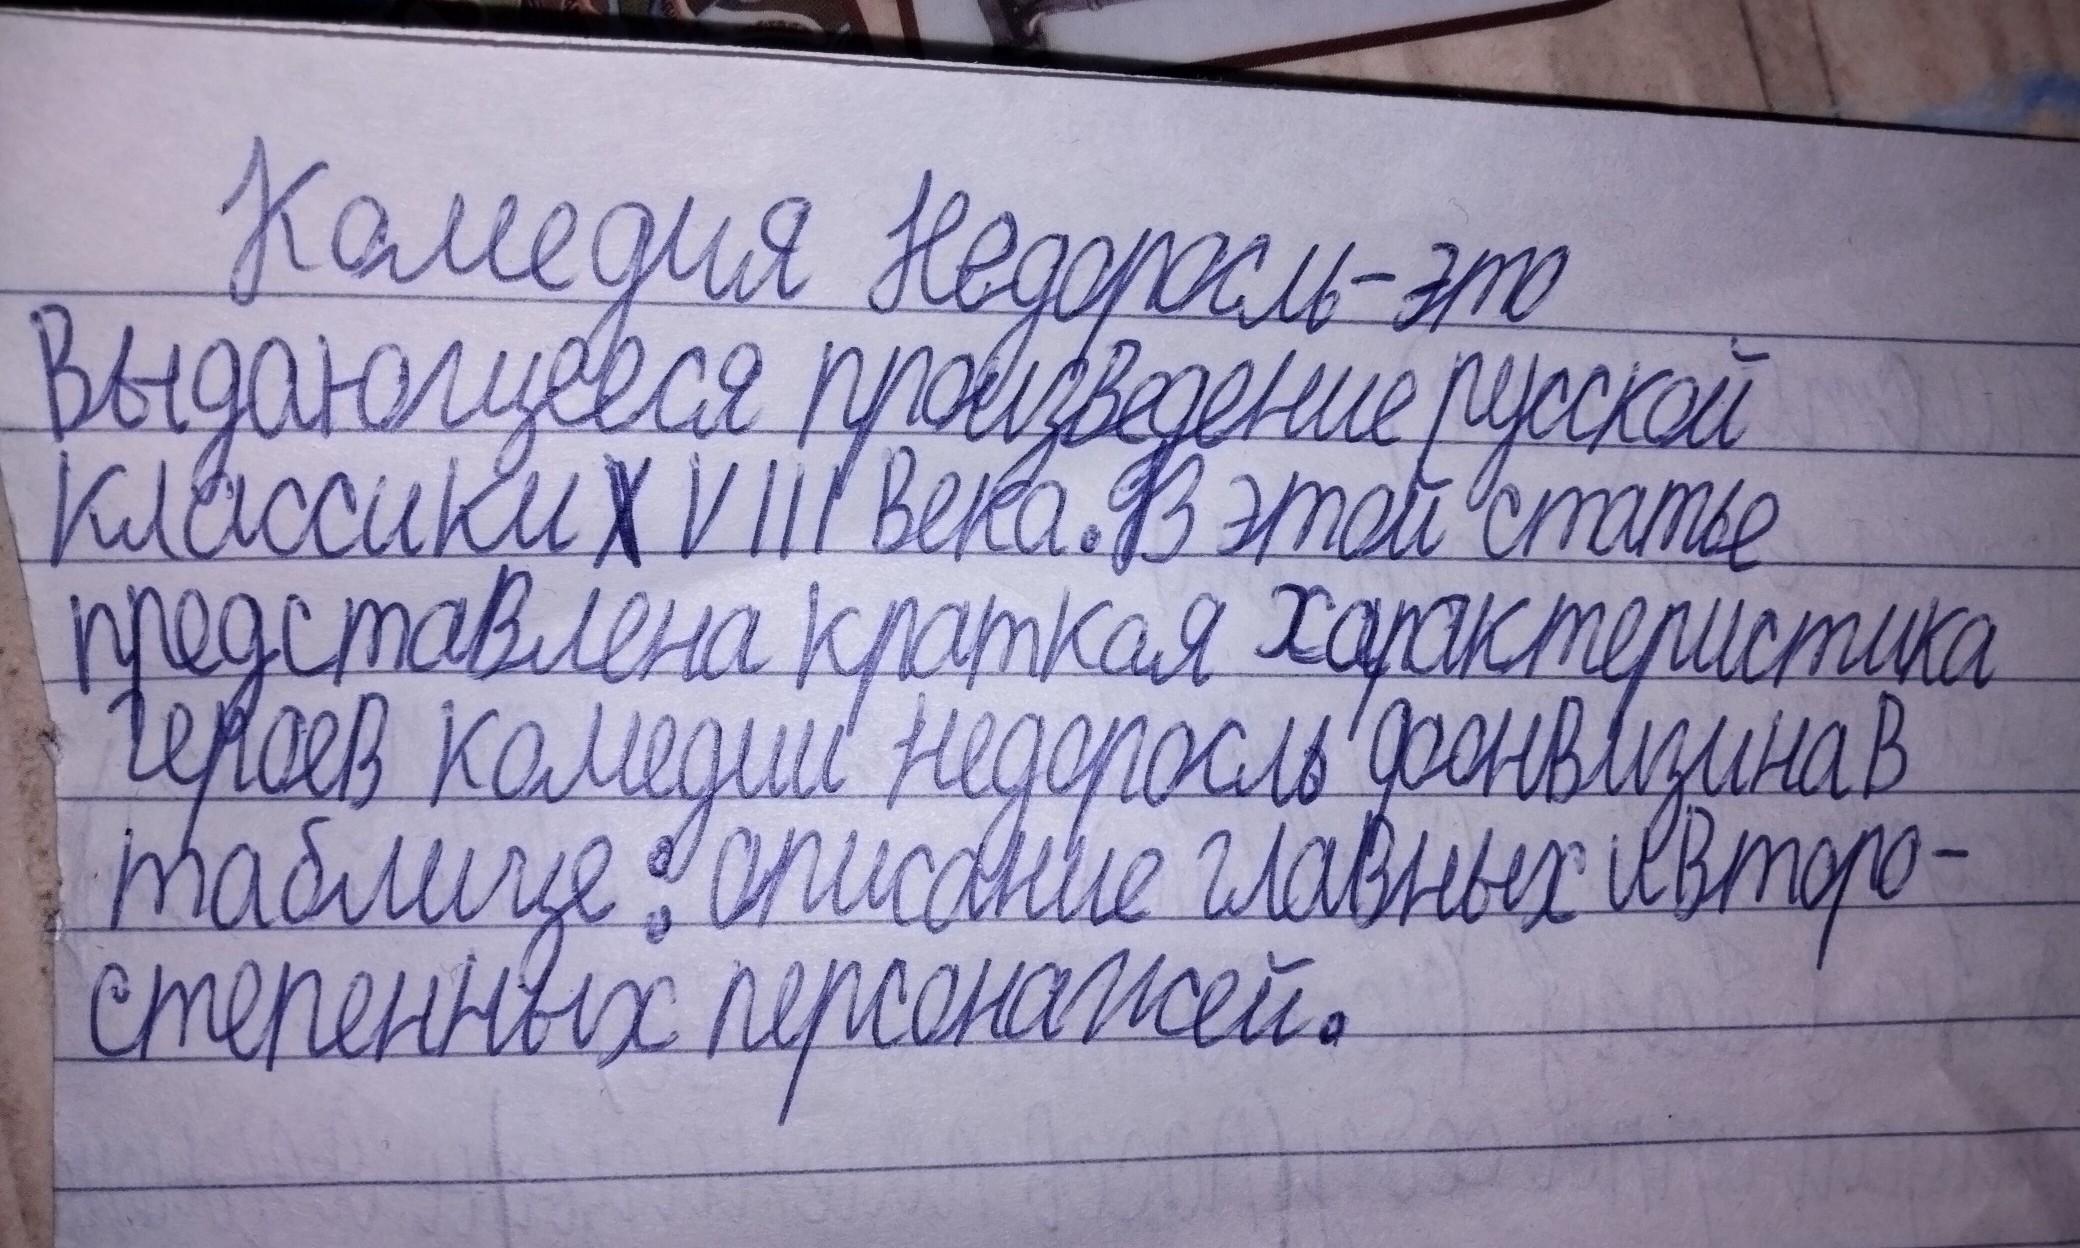 Комедия Недоросль-это
Выдающееся произведение русской
классики XVIII века. В этой статье
представлена краткая характеристика
героев комедии недоросль фонвизина в
таблице: описание главных и второ-
степенных персонажей.